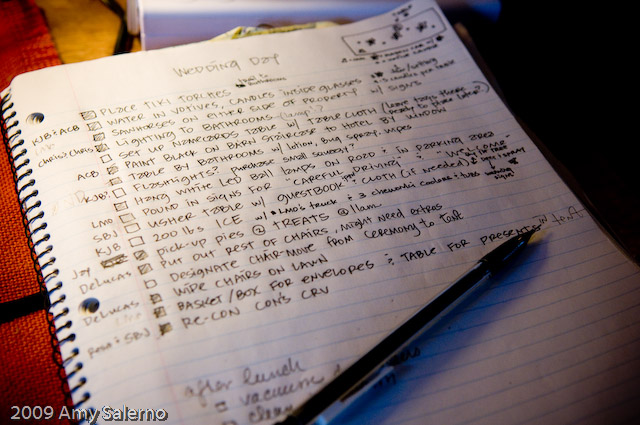 WEDDING DAY
PLACE TIKI TORCHES
KJB & ACB WATER IN VOTIVES, CANDLES INSIDE GLASSES
SAWHORSES ON EITHER SIDE OF PROPERTY w/ SIGNS
CHRIS & CHRIS LIGHTING TO BATHROOMS
SET UP NAMECARDS TABLE w/ TABLE CLOTH (leave
PAINT BLACK ON BARN STAIRCASE TO HOTEL BY WINDOW
ACB TABLE BY BATHROOMS w/ LOTION, BUG SPRAY, WIPES
FLASHLIGHTS? PURCHASE SMALL
KJB HANG WHITE LED BALL LAMPS ON ROAD & IN PARKING AREA
POUND IN SIGNS FOR "CAREFUL DRIVING" & "WELCOME"
USHER TABLE w/ GUESTBOOK & CLOTH (IF NEEDED)
SBJ 200 lbs ICE w/ truck & 3 coolers
KJB pick-up pies @ TREATS @ 11am
JOY PUT OUT REST OF CHAIRS, might need extras
DELUCAS DESIGNATE CHAIR MOVE from CEREMONY to TENT
WIDE CHAIRS ON LAWN
DELUCAS BASKET/BOX FOR ENVELOPES & TABLE FOR PRESENTS in tent
RE-CON CON'S CRV
after lunch
vacuum
clean
2009 Amy Salerno